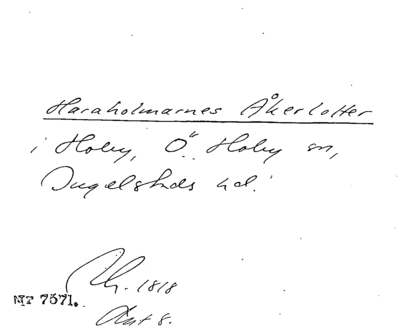 Haraholmarnes Åkerlotter
i Hoby, Ö. Hoby sn,
Ingelstads hd.
1818
NT 7571.
Akt 8.